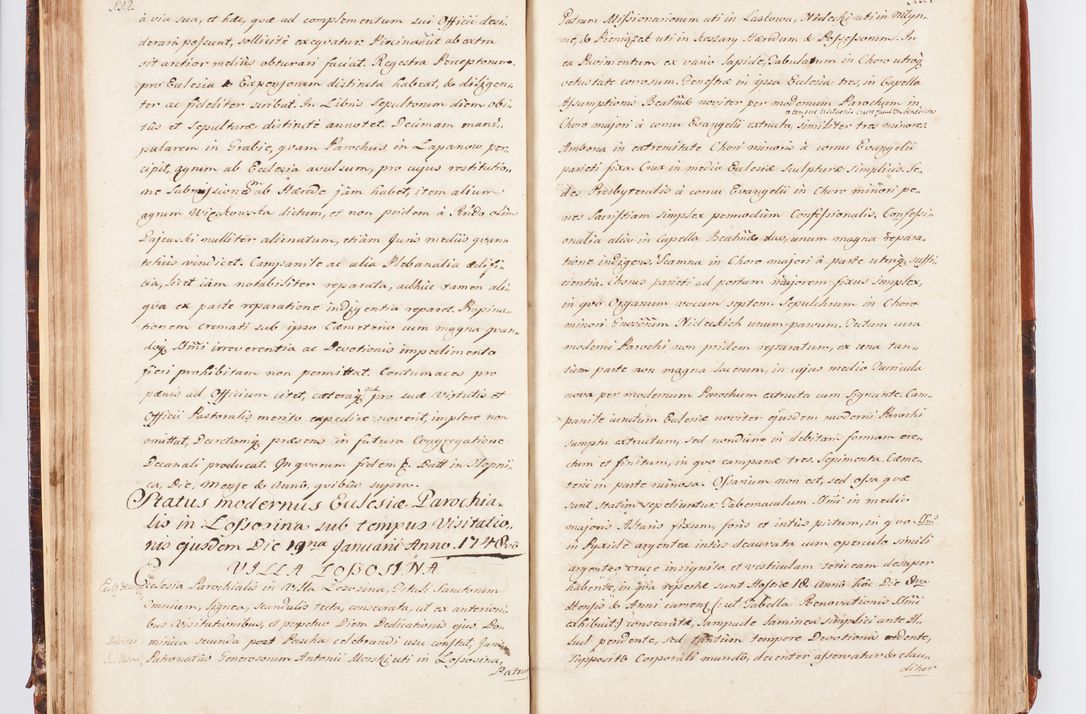 à via sua, et hæc, quæ ad complementum sui Officii desi-
derari possunt, sollicitè exequatur
sit arctior meliùs obturari faciat. Regestra Perceptorum
pro Ecclesia & Expensorum distincta habeat, & diligen-
ter ac fideliter scribat. In Libris Sepultorum diem obi-
tûs et Sepulturæ distinctè annotet. Decimam mani-
pularem in Grabie, quam Parochus in Lapanow per-
cipit, agrum ab Ecclesia avulsum, pro cujus restitutio-
ne Submissionem ab Hærede jam habet, item alium
agrum dictum, et non pridem à olim
nulliter alienatum, etiam Juris mediis quan-
totiùs vindicet. Campanile ac alia Plebanalia ædifi-
cia, licet jam notabiliter reparata, adhuc tamen ali-
qua ex parte reparatione indigentia reparet. Propina-
tionem cremati sub ipso Cæmeterio cum magna quan-
doq irreverentia ac Devotionis impedimento
fieri prohibitam non permittat. Contumaces pro
pænis ad Officium citet, cæteraq pro suæ Virtutis et
Officii Pastoralis merito expedire noverit, implere non
omittat, Decretumq præsens in futura Congregatione
Decanali producat. In quorum fidem Datt in
Die, Mense & Anno, quibus supra.
Status modernus Ecclesiæ Parochia-
lis in Lossosina sub tempus Visitatio-
nis ejusdem Die 19na Januarii Anno 1748vo
VILLA LOSOSINA
Ecclesia Parochialis in Villa Lososina, Tituli Sanctorum
Omnium, lignea, scandulis tecta, consecrata, ut ex anteriori-
bus Visitationibus, et perpetuo Diem Dedicationis ejus Do-
minica secunda post Pascha celebrandi usu constat, Juris
Patronatûs Generosorum Antonii uti in Lossosina,
Patrum
Patrum Missionariorum uti in Laskowa, Nidecki uti in Mlyn-
ne, & Pieniążek uti in Hæredum & Possessorum. In
ea Pavimentum ex vario lapide, Tabulatum in Choro utroq
vetustate corrosum. Fenestræ in ipsa Ecclesia tres, in Capella
Assumptionis Beatmæ noviter per modernum Parochum in
Choro majori à cornu Evangelii extructa, similiter tres minores
Ambona in extremitate Chori minoris à cornu Evangelii
parieti fixa. Crux in medio Ecclesiæ Sculpturæ Simplicis. Se-
des Presbyteralis à cornu Evangelii in Choro minori pe-
nes Sacristiam simplex per modum Confessionalis. Confessi-
onalia alia in Capella Beatmæ duo, unum magna repara-
tione indigens. Scamna in Choro majori à parte utraq suffi-
cientia. Chorus parieti ad portam majorem fixus simplex,
in quo Organum vocum septem. Sepulchrum in Choro
minori Nideckich unum parvum. Tectum cura
moderni Parochi non pridem reparatum, ex una tan-
tum parte non magna lacerum, in cujus medio Turricula
nova per modernum Parochum extructa cum Signante. Cam-
panile juxtim Ecclesiæ noviter ejusdem moderni Parochi
sumptu extructum, sed nondum in debitam formam ere-
ctum et finitum, in quo campanæ tres. Sepimenta Cæme-
terii in parte ruinosa. Ossarium non est, sed ossa quæ
sunt statim sepeliuntur. Tabernaculum in medio
majoris Altaris fixum, foris et intùs pictum, in quo
in Pyxide argentea intùs deaurata cum operculo simili
argenteo cruce insignito, et vestibulum sericeam desuper
habente, in qua repertæ sunt Hostiæ 18. Anno hoc Die
Mensis & Anni currentis ut Tabella Renovationis
exhibuit consecratæ, Lampade laminea simplici ante
pendente, sed tantùm tempore Devotionis ardente,
Supposito Corporali mundo, decenter asservatur & clau-
ditur